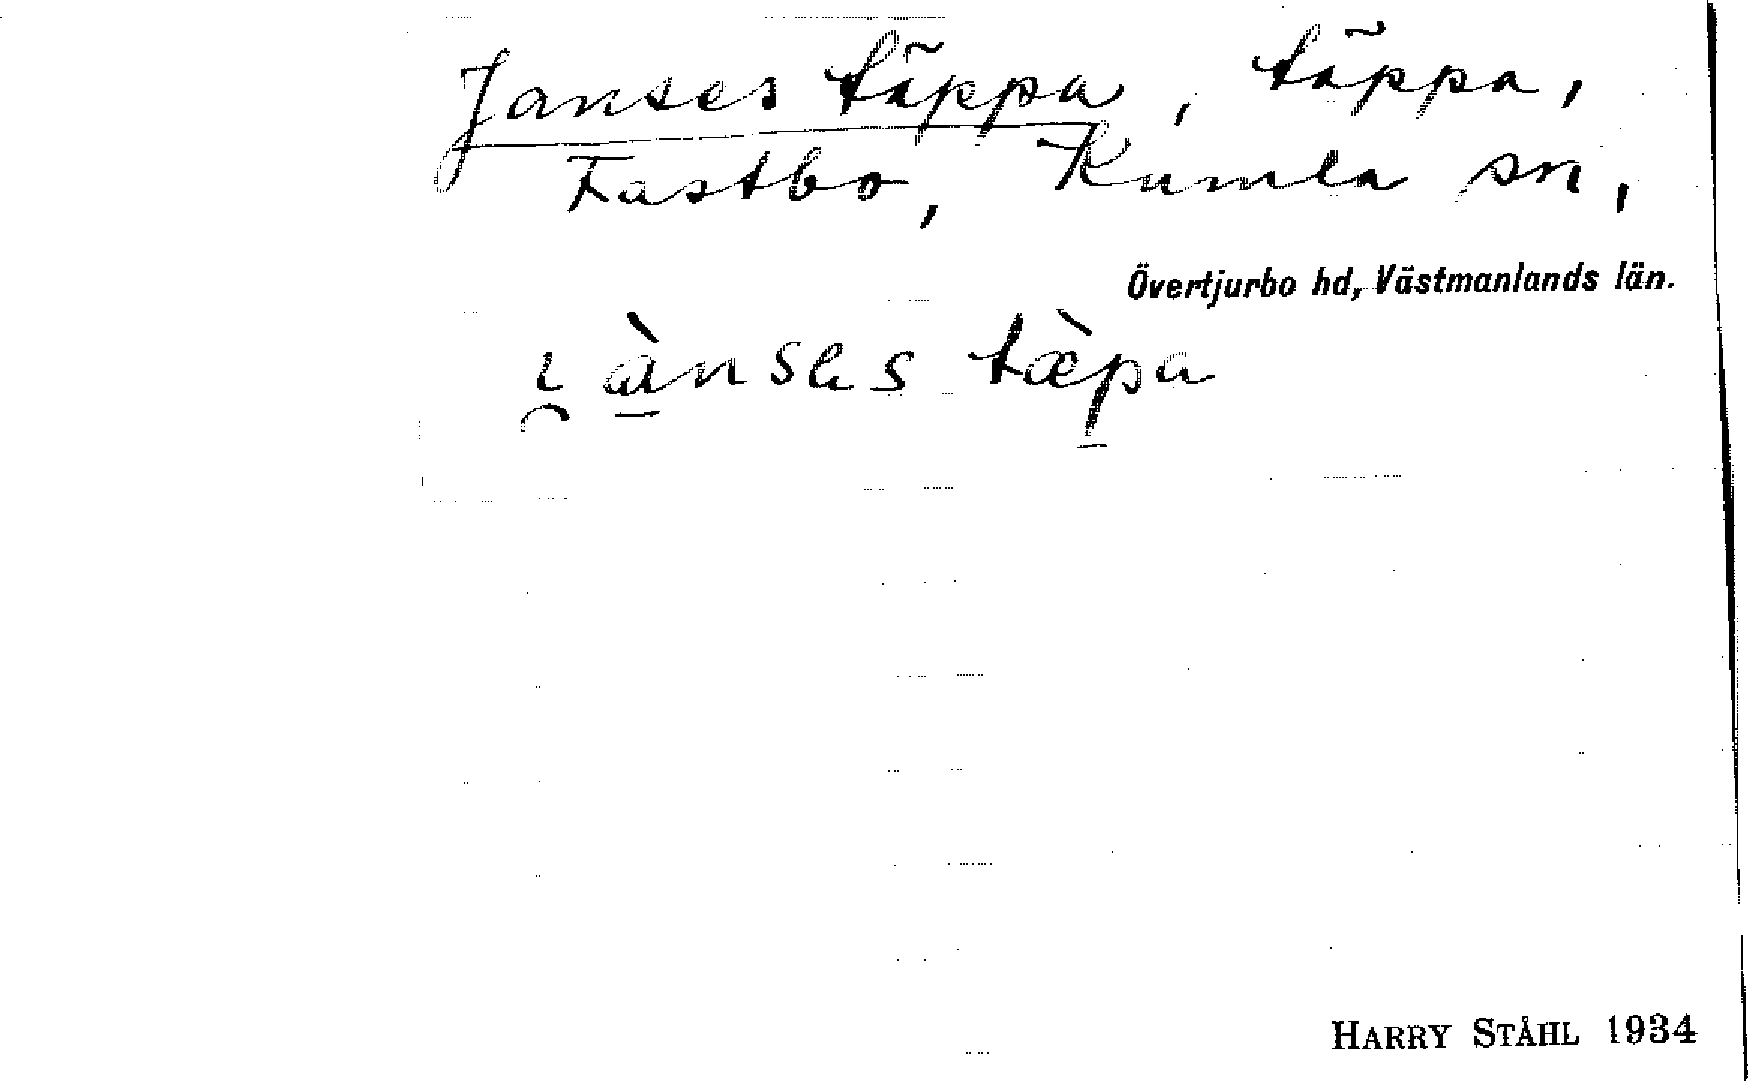 Janses täppa, täppa,
Fastbo, Kumla sn,
Övertjurbo hd, Västmanlands län.
i̯ànses tæ̀pa
HARRY STÅHL 1934